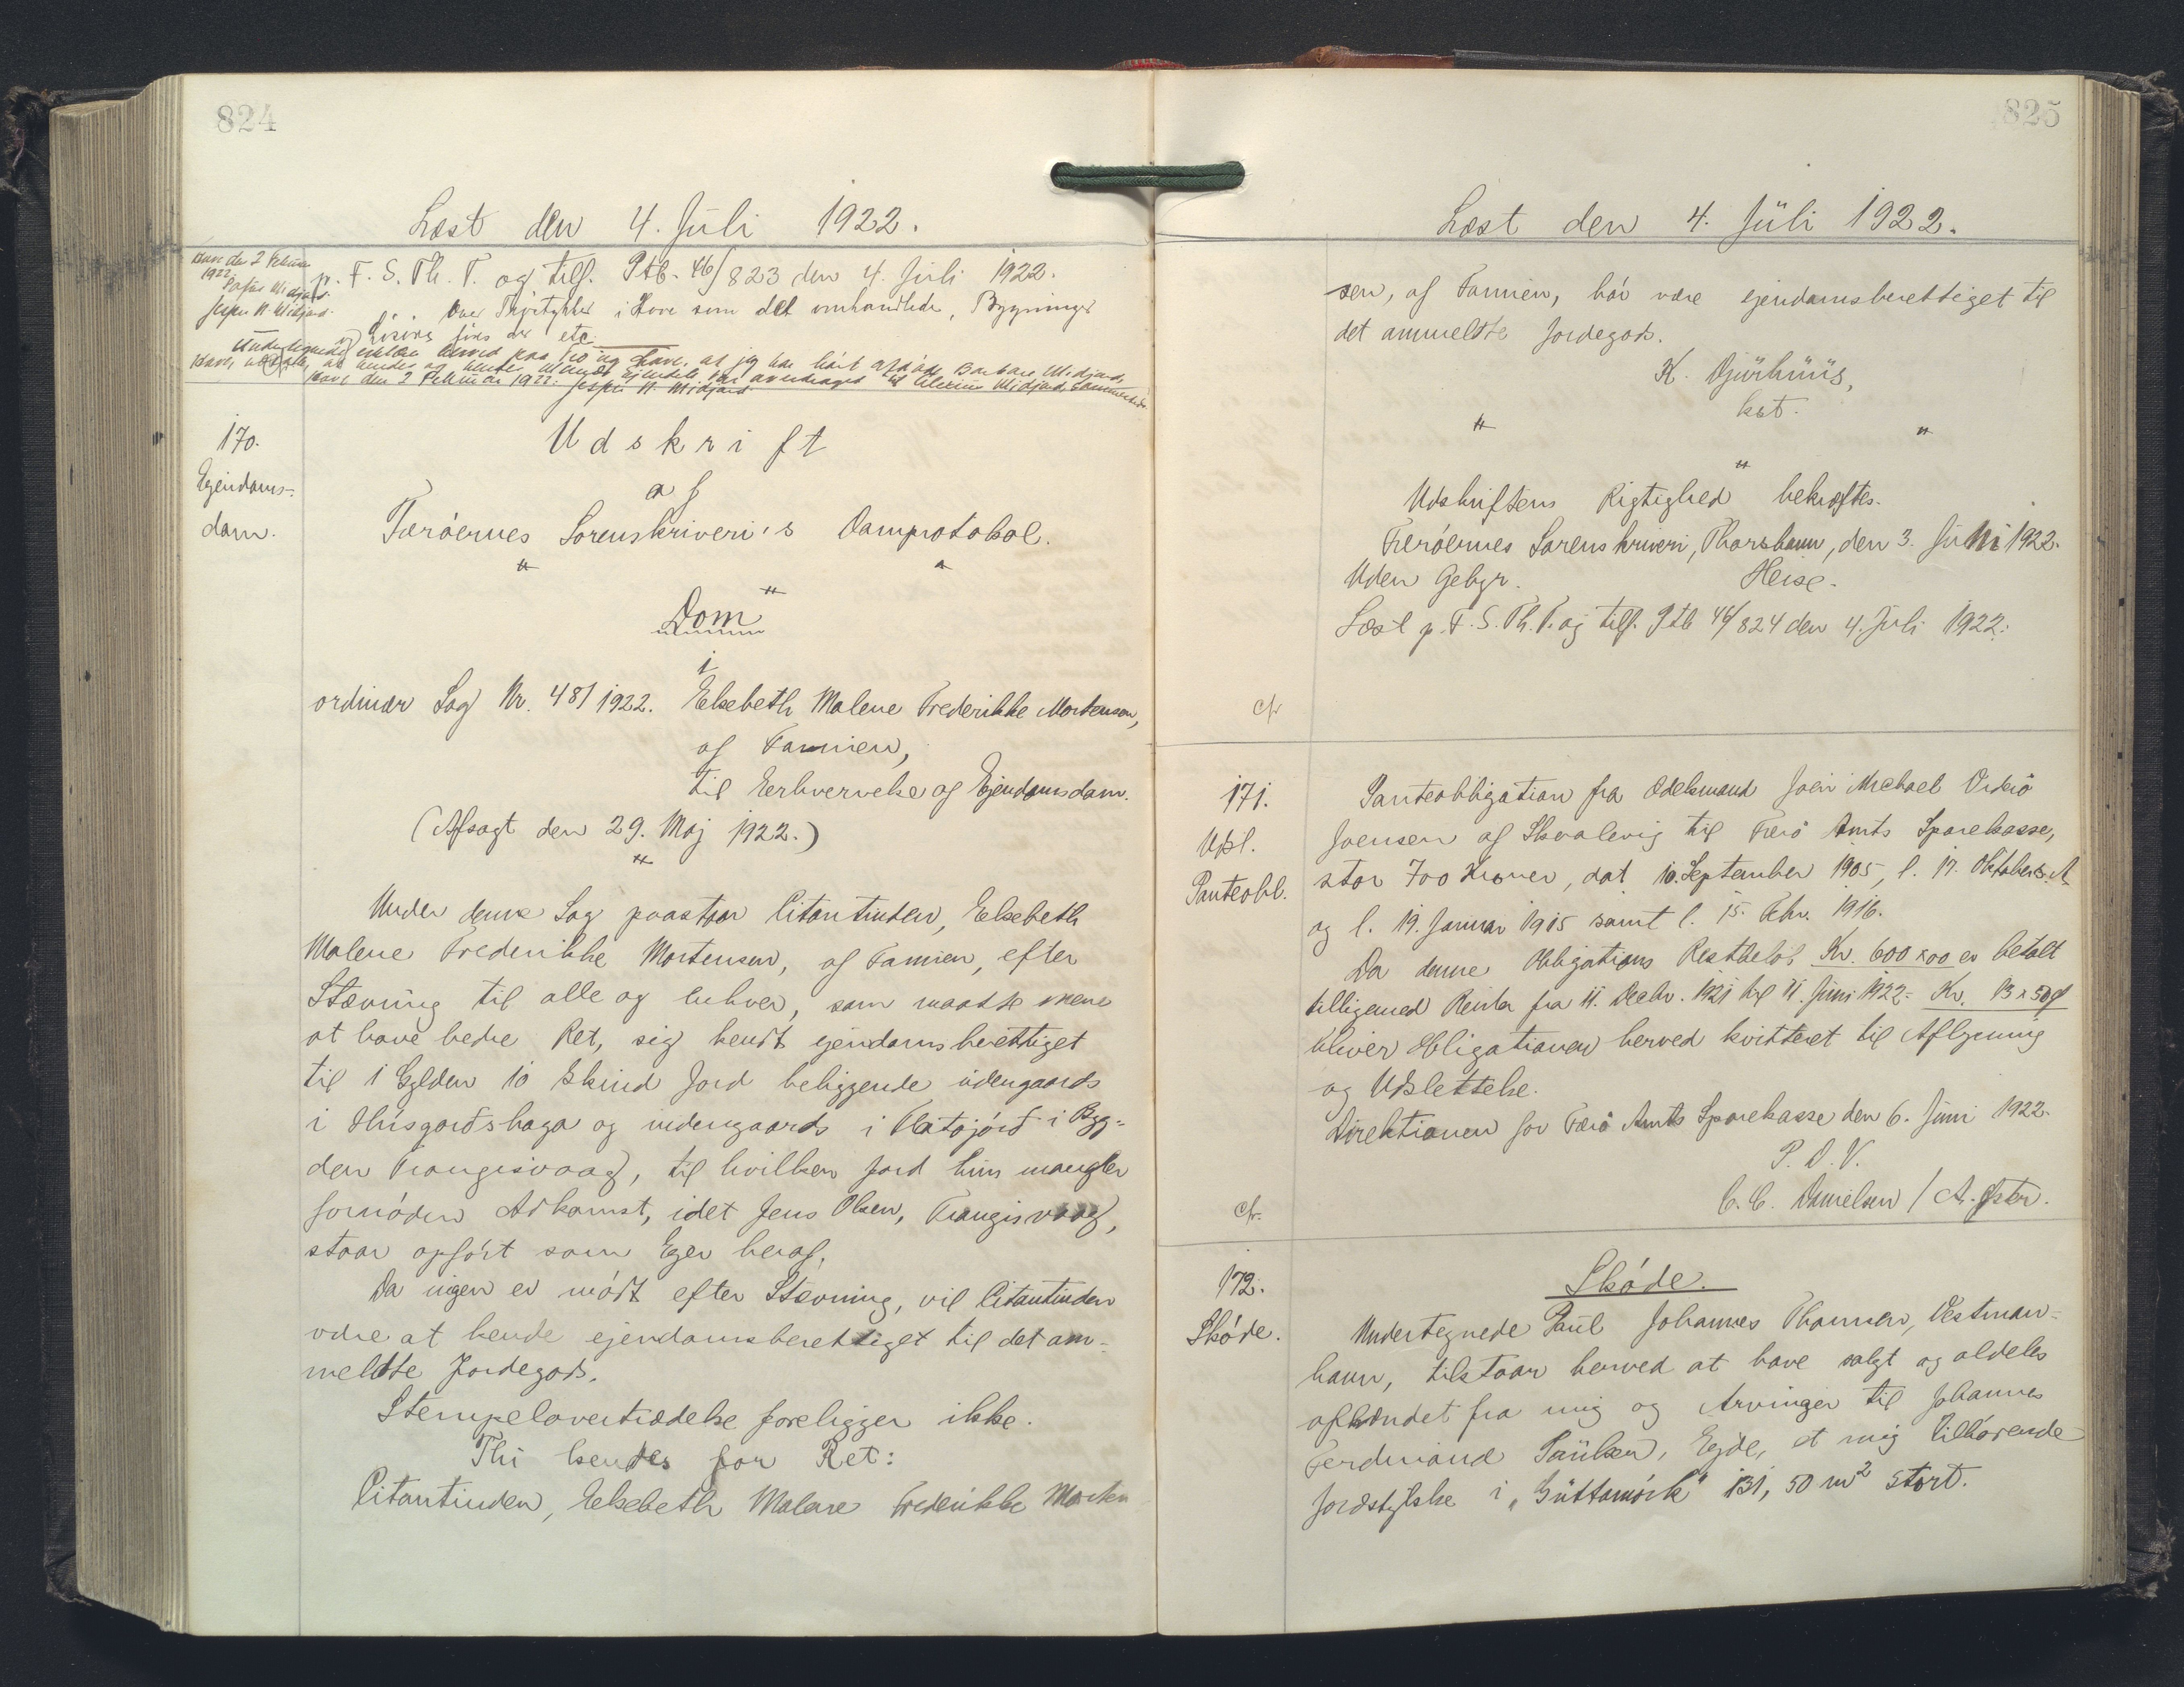 824
Læst den 4. Juli 1922.
Kave den 2 Februar
1922.
Jesper N. Midjord.
p. F. S. Th. T. og tilf. Ptb. 46/823 den 4. Juli 1922.
i Hove som det omhandlede, Bygninger
etc.
Undertegnede erklær herved paa Tro og Love, at jeg har hørt afdøde Barbara Midjord,
den 2 Februar 1922. Jesper N. Midjord
170.
Ejendoms-
dom.
Udskrift
af
Færøernes Sorenskriveri's Domprotokol.
Dom
i
ordinær Sag Nr. 48/1922. Elsebeth Malene Frederikke Mortensen,
af Famien,
til Erhvervelse af Ejendomsdom.
(Afsagt den 29. Maj 1922.)
Under denne Sag paastaar Citantinden, Elsebeth
Malene Frederikke Mortensen, af Famien, efter
Stævning til alle og enhver, som maatte mene
at have bedre Ret, sig kendt ejendomsberettiget
til 1 Gylden 10 Skind Jord beliggende udengaards
i Húsgardshaga og indengaards i Flatajørd i Byg-
den Trangisvaag, til hvilken Jord hun mangler
fornøden Adkomst, idet Jens Olsen, Trangisvaag,
staar opført som Ejer heraf.
Da ingen er mødt efter Stævning, vil Citantinden
være at kende ejendomsberettiget til det am-
meldte Jordegods.
Stempelovertrædelse foreligger ikke.
Thi kendes for Ret:
Citantinden, Elsebeth Malene Frederikke Morten
825
Læst den 4. Júli 1922.
sen, af Famien, bør være ejendomsberettiget til
det ammeldte Jordegods.
K. Djürhüüs,
kst.
Udskriftens Rigtighed bekræftes.
Færøernes Sorenskriveri, Thorshavn, den 3. Juni 1922.
Uden Gebyr. Heise.
Læst p. F. S. Th. T. og tilf. Ptb 46/824 den 4. Juli 1922.
cfr
171.
Udsl.
Panteobl.
Panteobligation fra Odelsmand Joen Michael Viderø
Joensen af Skvalevig til Færø Amts Sparekasse,
stor 700 Kroner, dat. 10. September 1905, l. 17. Oktober s. A.
og l. 19. Januar 1915 samt l. 15. Febr. 1916.
Da denne Obligations Restbeløb Kr. 600 x 00 er betalt
tilligemed Renter fra 11. Decbr. 1921 til 11. Juni 1922 = Kr. 13 x 50
bliver Obligationen herved kvitteret til Aflysning
og Udslettelse.
Direktionen for Færø Amts Sparekasse den 6. Juni 1922.
P. D. V.
C. C. Danielsen / A. Øster.
cfr.
172.
Skøde.
Skøde.
Undertegnede Paul Johannes Thomsen, Vestman-
havn, tilstaar herved at have solgt og aldeles
afhændet fra mig og Arvinger til Johannes
Ferdinand Paülsen, Egde, et mig tilhørende
Jordstykke i "Güttamørk" 131,50 m² stort.